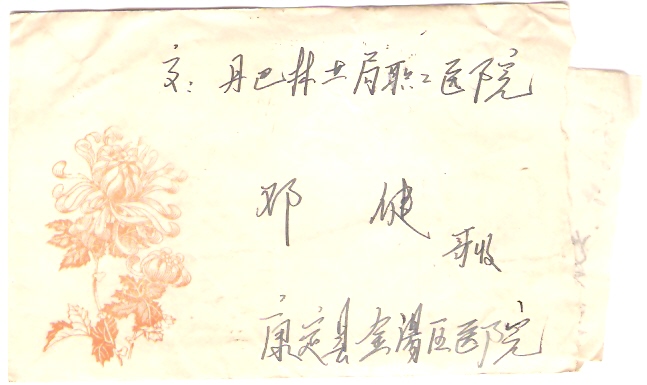 交：丹巴林业局职工医院
邓健
哥收
康定县金汤区医院